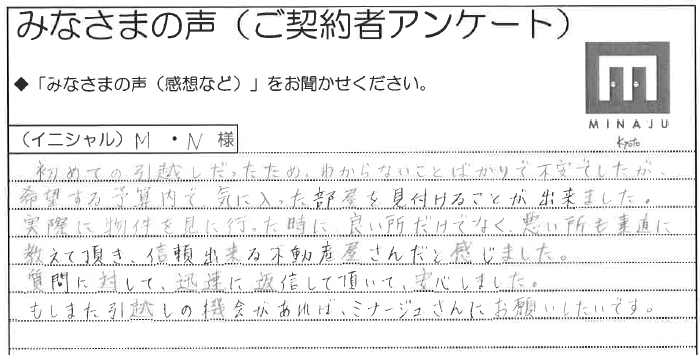 みなさまの声（ご契約者アンケート）
◆「みなさまの声（感想など）」をお聞かせください。
MINAJU
Kyoto
（イニシャル）M・N様
初めての引越しだったため、わからないことばかりで不安でしたが、
希望する予算内で気に入った部屋を見付けることが出来ました。
実際に物件を見に行った時に良い所だけでなく、悪い所も素直に
教えて頂き、信頼出来る不動産屋さんだと感じました。
質問に対して、迅速に返信して頂いて、安心しました。
もしまた引越しの機会があれば、ミナージュさんにお願いしたいです。